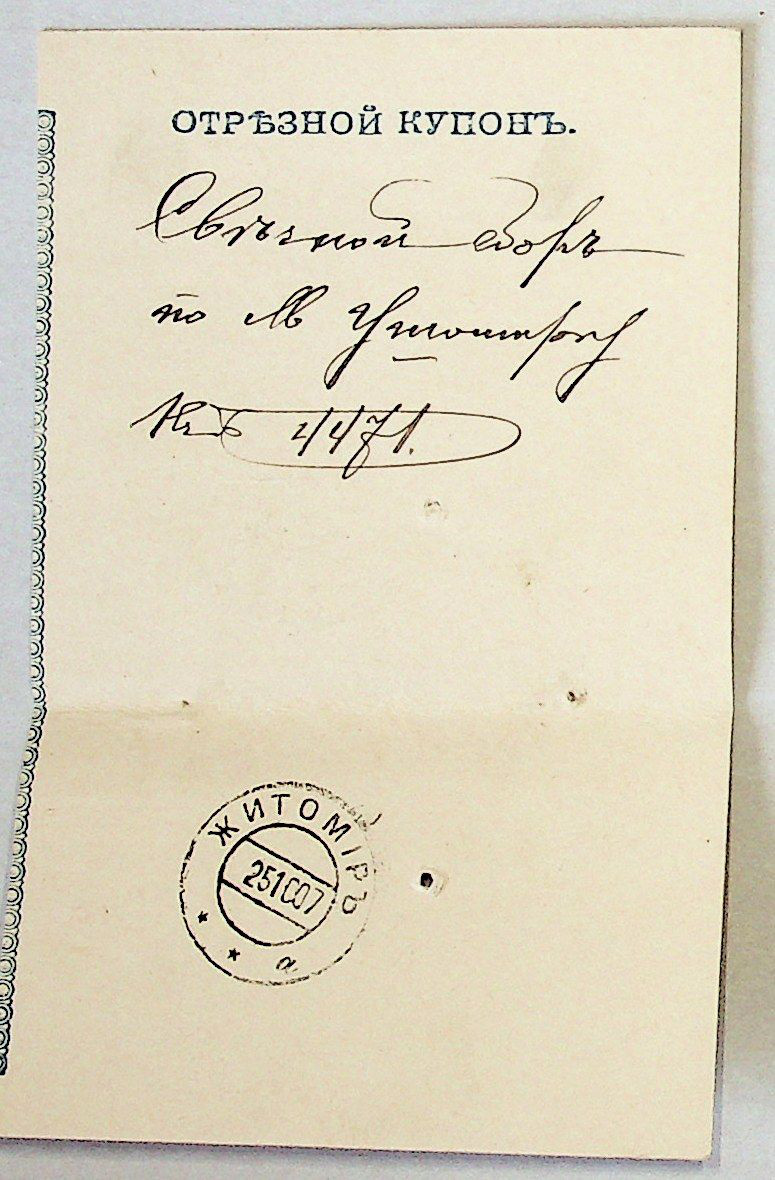 ОТРѢЗНОЙ КУПОНЪ.
Свѣчной сборъ
по м Ушомиру
4471.
ЖИТОМІРЪ
251007
а